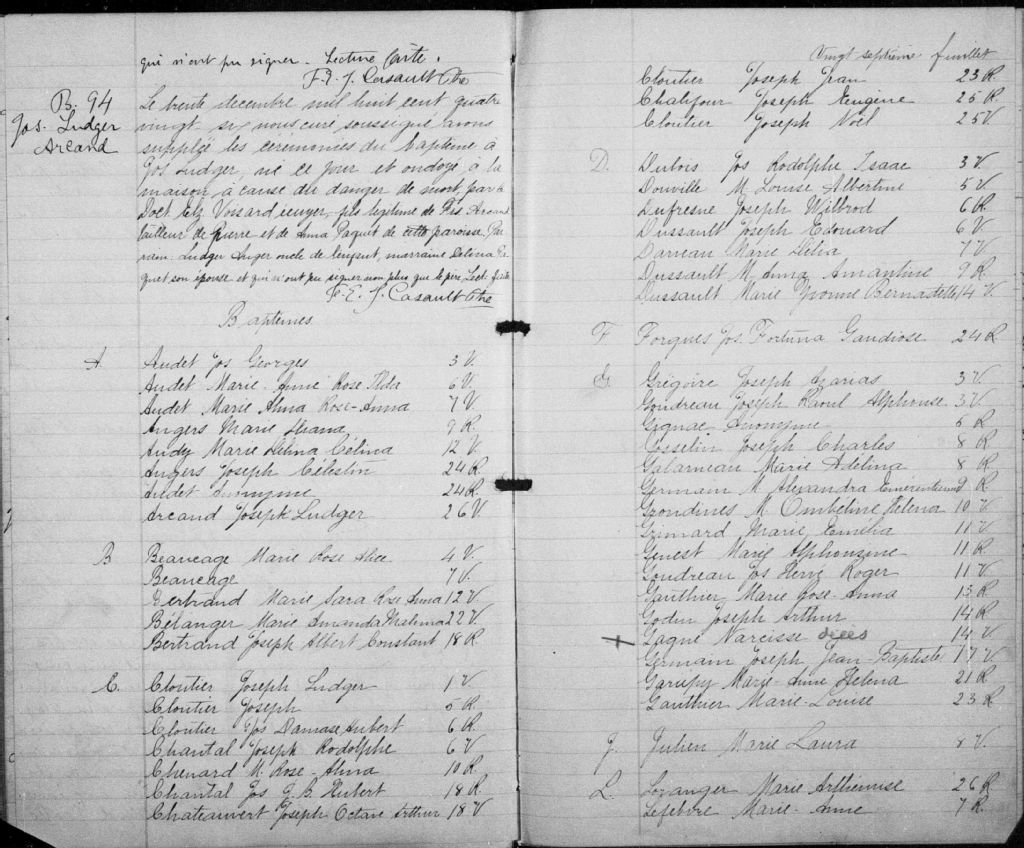 qui n'ont pu signer. Lecture faite.
F. E. J. Casault Ptre
B. 94
Jos. Ludger
Arcand
Le trente decembre mil huit cent quatre
vingt six nous curé soussigné avons
supplée les ceremonies du bapteme à
Jos Ludger, né ce jour et ondoyé, à la
maison, à cause du danger de mort, par le
Doct. Elz. Voisard, fils legitime de Frs. Arcand
tailleur de pierre et de Anna Paquet de cette paroisse. Par
rain: Ludger Auger oncle de l'enfant, marraine Delina Pa
quet son épouse et qui n'ont pu signer non plus que le père. Lect. faite
F. E. J. Casault Ptre
Baptêmes
A. Audet Jos Georges 3 V.
Audet Marie Anne Rose Ilda 6 V.
Audet Marie Alma Rose-Anna 7 V.
Angers Marie 9 R.
Andy Marie Délina Célina 12 V.
Angers Joseph Célestin 24 R.
Audet Anonyme 24 R.
Arcand Joseph Ludger 26 V
B Beaucage Marie Rose Alice 4 V.
Beaucage 7 V.
Bertrand Marie Sara Rose Anna 12 V.
Bélanger Marie Amanda Malvina 22 V.
Bertrand Joseph Albert Constant 18 R.
C. Cloutier Joseph Ludger 1 V
Cloutier Joseph 5 R.
Cloutier Jos Damase Hubert 6 R.
Chantal Joseph Rodolphe 6 V
Chenard M. Rose-Alma 10 R.
Chantal Jos J. B. Hubert 18 R.
Chateauvert Joseph Octave Arthur 18 V
Vingt septième feuillet
Cloutier Joseph Jean 23 R.
Chalifour Joseph Eugène 25 R.
Cloutier Joseph Noël 25 V.
D. Dubois Jos Rodolphe Isaac 3 V.
Douville M. Louise Albertine 5 V.
Dufresne Joseph Wilbrod 6 R.
Dussault Joseph Edouard 6 V.
Darveau Marie Délia 7 V
Dussault M. Anna Amantine 9 R.
Dussault Marie Yvonne Bernadette 14 V.
F. Forgues Jos. Fortuna Gaudiose 24 R
G. Grégoire Joseph 3 V.
Goudreau Joseph Raoul Alphonse 3 V.
Gignac Anonyme 5 R
Gosselin Joseph Charles 8 R
Galarneau Marie Adélina 8 R
Germain M. Alexandra Emérentienne 9 R
Grondines M. Ombéline Héléna 10 V.
Grimard Marie Emélia 11 V
Genest Marie Alphonsine 11 R
Goudreau Jos Hervé Roger 11 V
Gauthier Marie Rose-Anna 13 R
Godin Joseph Arthur 14 R
+ Gagné Narcisse 14 V
Germain Joseph Jean-Baptiste 17 V
Garupy Marie-Anne Héléna 21 R
Gauthier Marie-Louise 23 R
J. Julien Marie Laura 8 V.
L. Loranger Marie Arthémise 26 R
Lefebvre Marie-Anne 7 R.